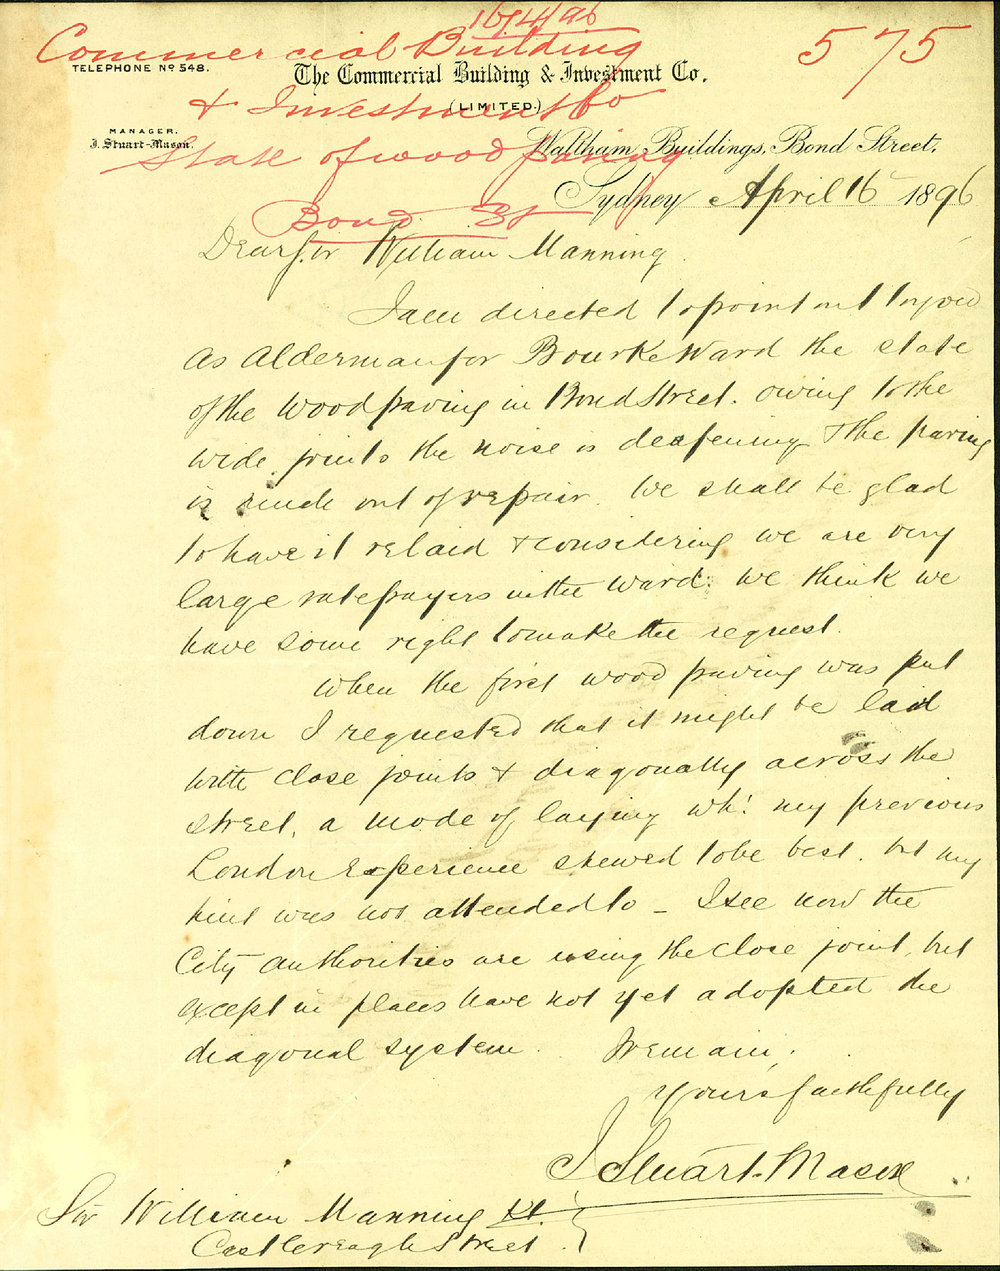 16/4/96
Commercial Building 575
TELEPHONE No 548.
The Commercial Building & Investment Co.
& Investment Co
(LIMITED.)
MANAGER.
J. Stuart-Mason.
State of wood paving
Waltham Buildings, Bond Street,
Sydney April 16 1896
Bond St
Dear Sir William Manning
I am directed to point out to you
as Alderman for Bourke Ward the state
of the wood paving in Bond Street. owing to the
wide joints the noise is deafening & the paving
is much out of repair. We shall be glad
to have it relaid & considering we are very
large ratepayers in the ward. we think we
have some right to make the request.
When the first wood paving was put
down I requested that it might be laid
with close joints & diagonally across the
street, a mode of laying wh: my previous
London Experience shewed to be best. but my
hint was not attended to _ I see now the
City authorities are using the close joint, but
except in places have not yet adopted the
diagonal system. I remain,
Yours faithfully
J Stuart-Mason
Sir William Manning Kt.
Castlereagh Street.